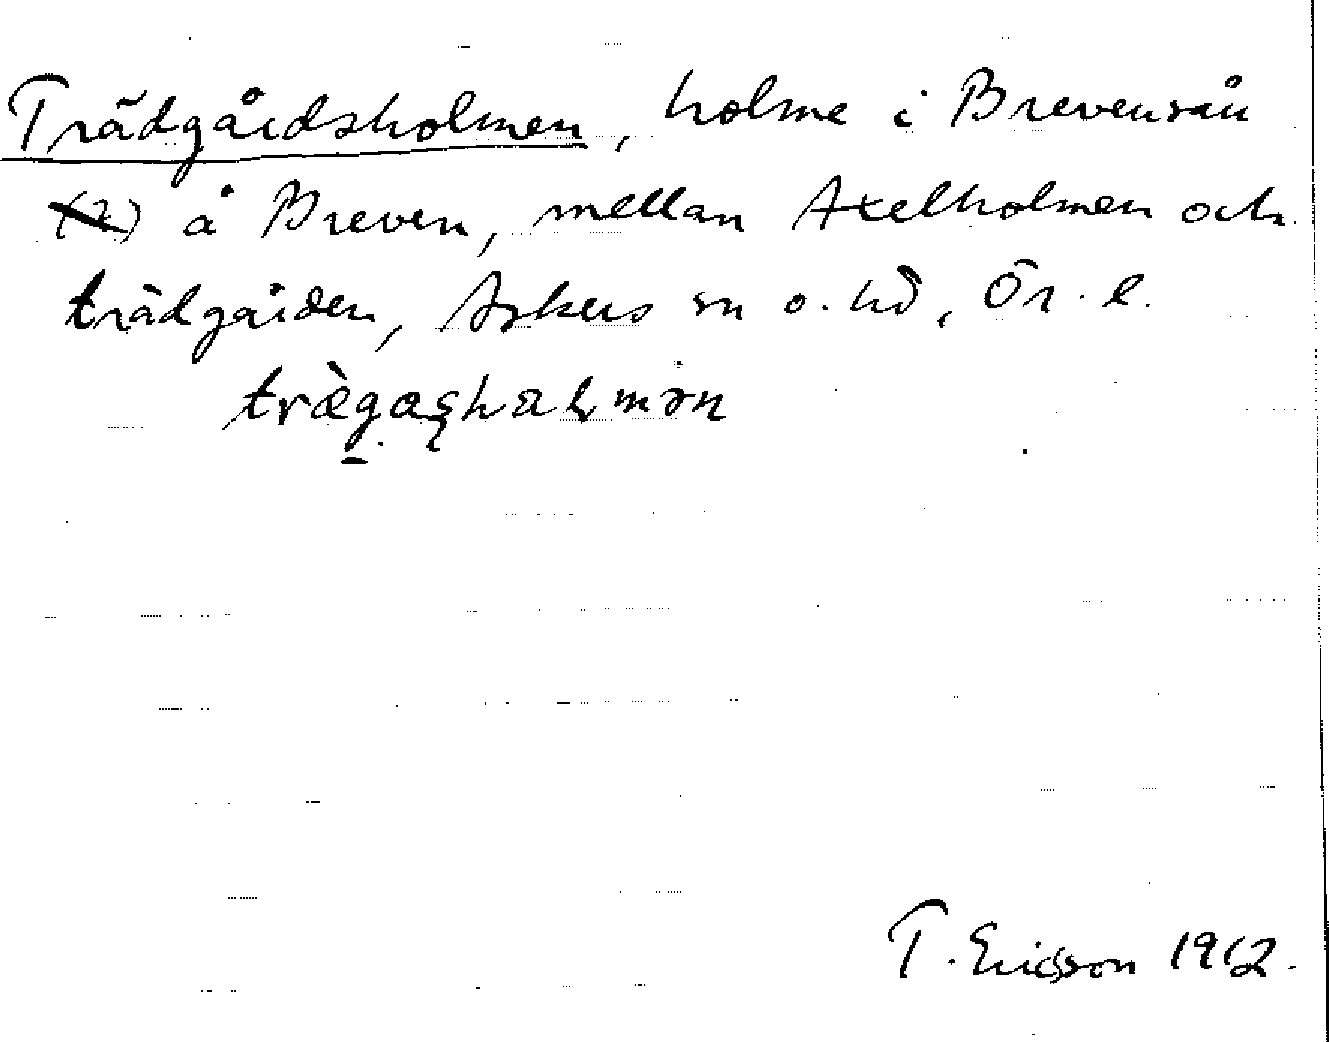 Trädgårdsholmen, holme i Brevensån
(?) å Breven, mellan Axelholmen och
trädgården, Askers sn o. hd, Ör. l.
T. Ericsson 1912.